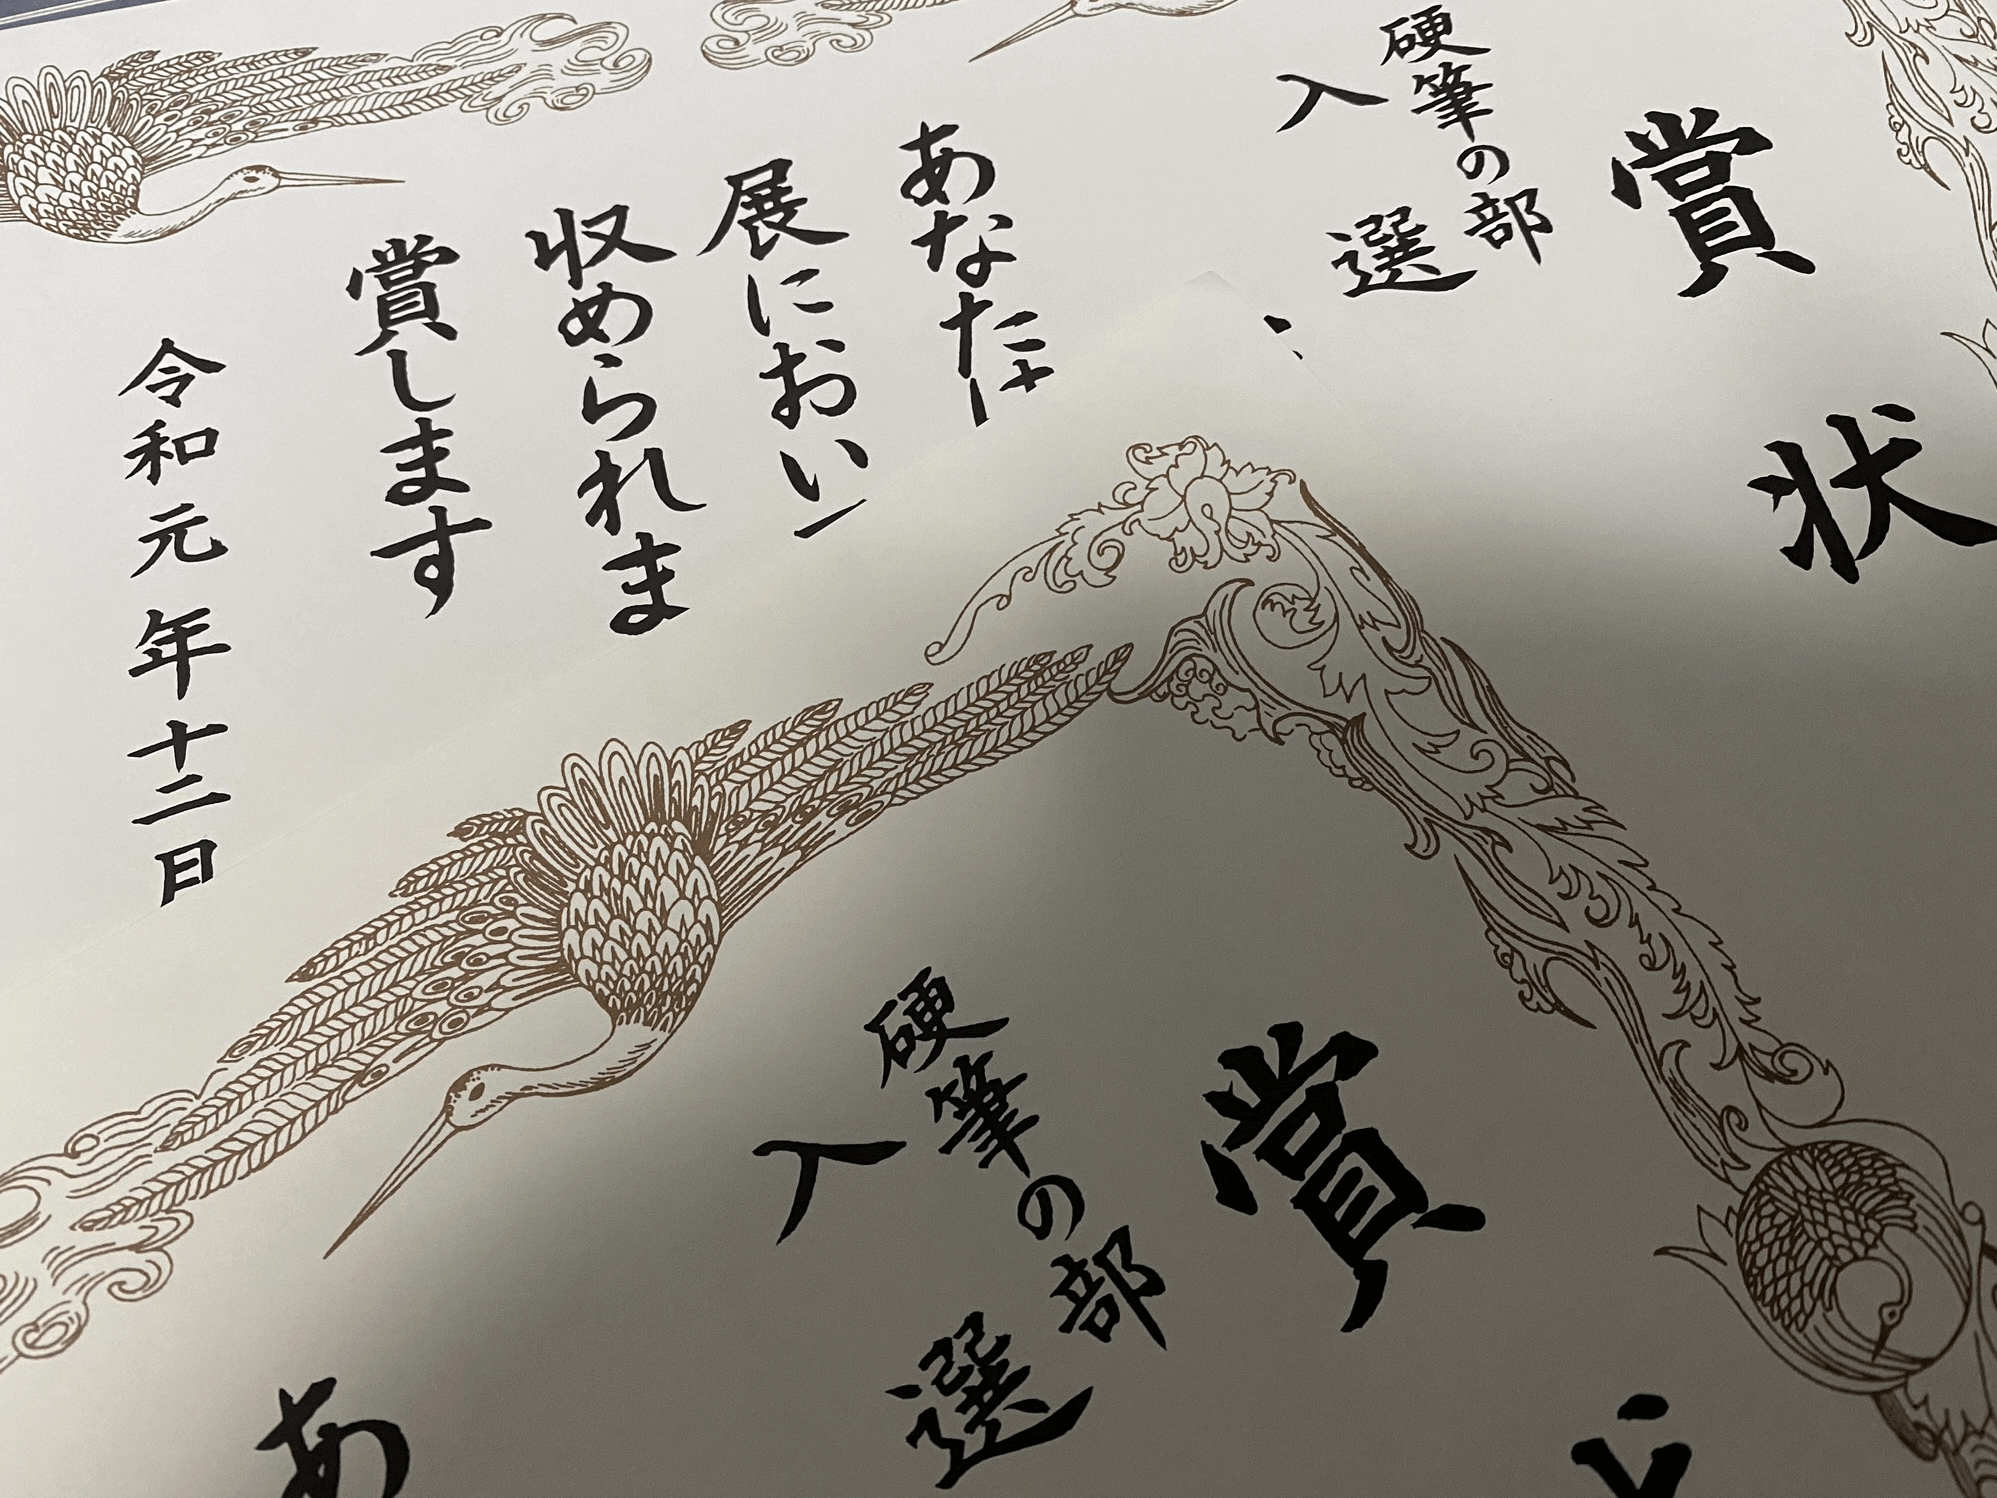 賞状
硬筆の部
入選
あなたは
展におい
収められま
賞します
令和元年十二日
賞
硬筆の部
入選
あ